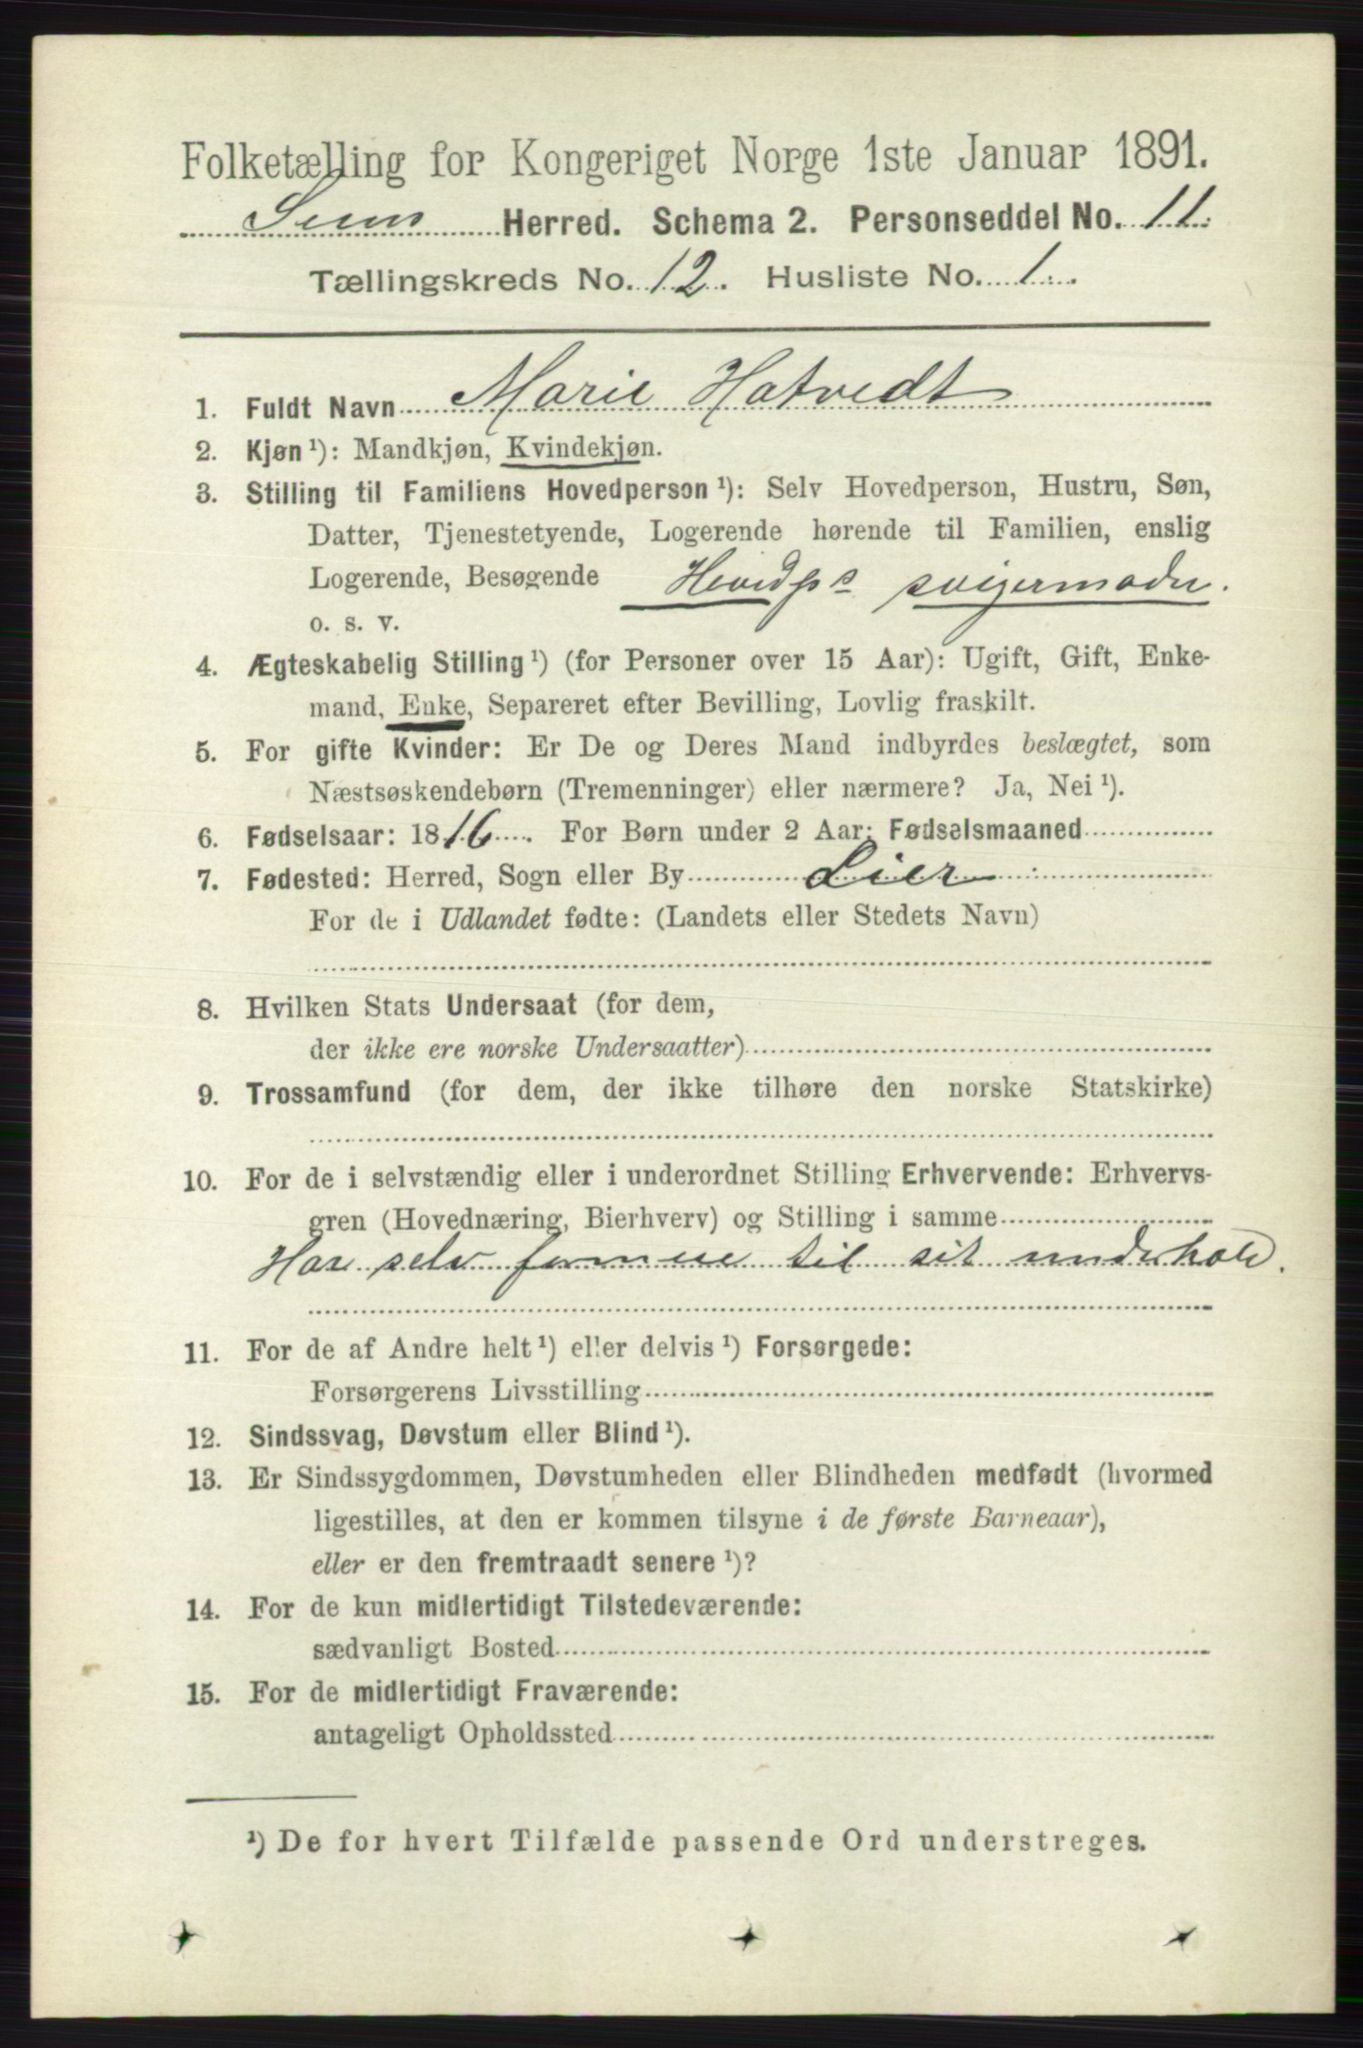 Folketælling for Kongeriget Norge 1ste Januar 1891.
Sem Herred. Schema 2. Personseddel No. 11.
Tællingskreds No. 12. Husliste No. 1.
1. Fuldt Navn Marie Hotvedt
2. Kjøn ¹): Mandkjøn, Kvindekjøn.
3. Stilling til Familiens Hovedperson ¹): Selv Hovedperson, Hustru, Søn,
Datter, Tjenestetyende, Logerende hørende til Familien, enslig
Logerende, Besøgende Hovedps svigermoder.
o. s. v.
4. Ægteskabelig Stilling ¹) (for Personer over 15 Aar): Ugift, Gift, Enke-
mand, Enke, Separeret efter Bevilling, Lovlig fraskilt.
5. For gifte Kvinder: Er De og Deres Mand indbyrdes beslægtet, som
Næstsøskendebørn (Tremenninger) eller nærmere? Ja, Nei ¹).
6. Fødselsaar: 1816. For Børn under 2 Aar: Fødselsmaaned
7. Fødested: Herred, Sogn eller By Lier
For de i Udlandet fødte: (Landets eller Stedets Navn)
8. Hvilken Stats Undersaat (for dem,
der ikke ere norske Undersaatter)
9. Trossamfund (for dem, der ikke tilhøre den norske Statskirke)
10. For de i selvstændig eller i underordnet Stilling Erhvervende: Erhvervs-
gren (Hovednæring, Bierhverv) og Stilling i samme
Har selv formue til sit underhold.
11. For de af Andre helt ¹) eller delvis ¹) Forsørgede:
Forsørgerens Livsstilling
12. Sindssvag, Døvstum eller Blind ¹).
13. Er Sindssygdommen, Døvstumheden eller Blindheden medfødt (hvormed
ligestilles, at den er kommen tilsyne i de første Barneaar),
eller er den fremtraadt senere ¹)?
14. For de kun midlertidigt Tilstedeværende:
sædvanligt Bosted
15. For de midlertidigt Fraværende:
antageligt Opholdssted
¹) De for hvert Tilfælde passende Ord understreges.